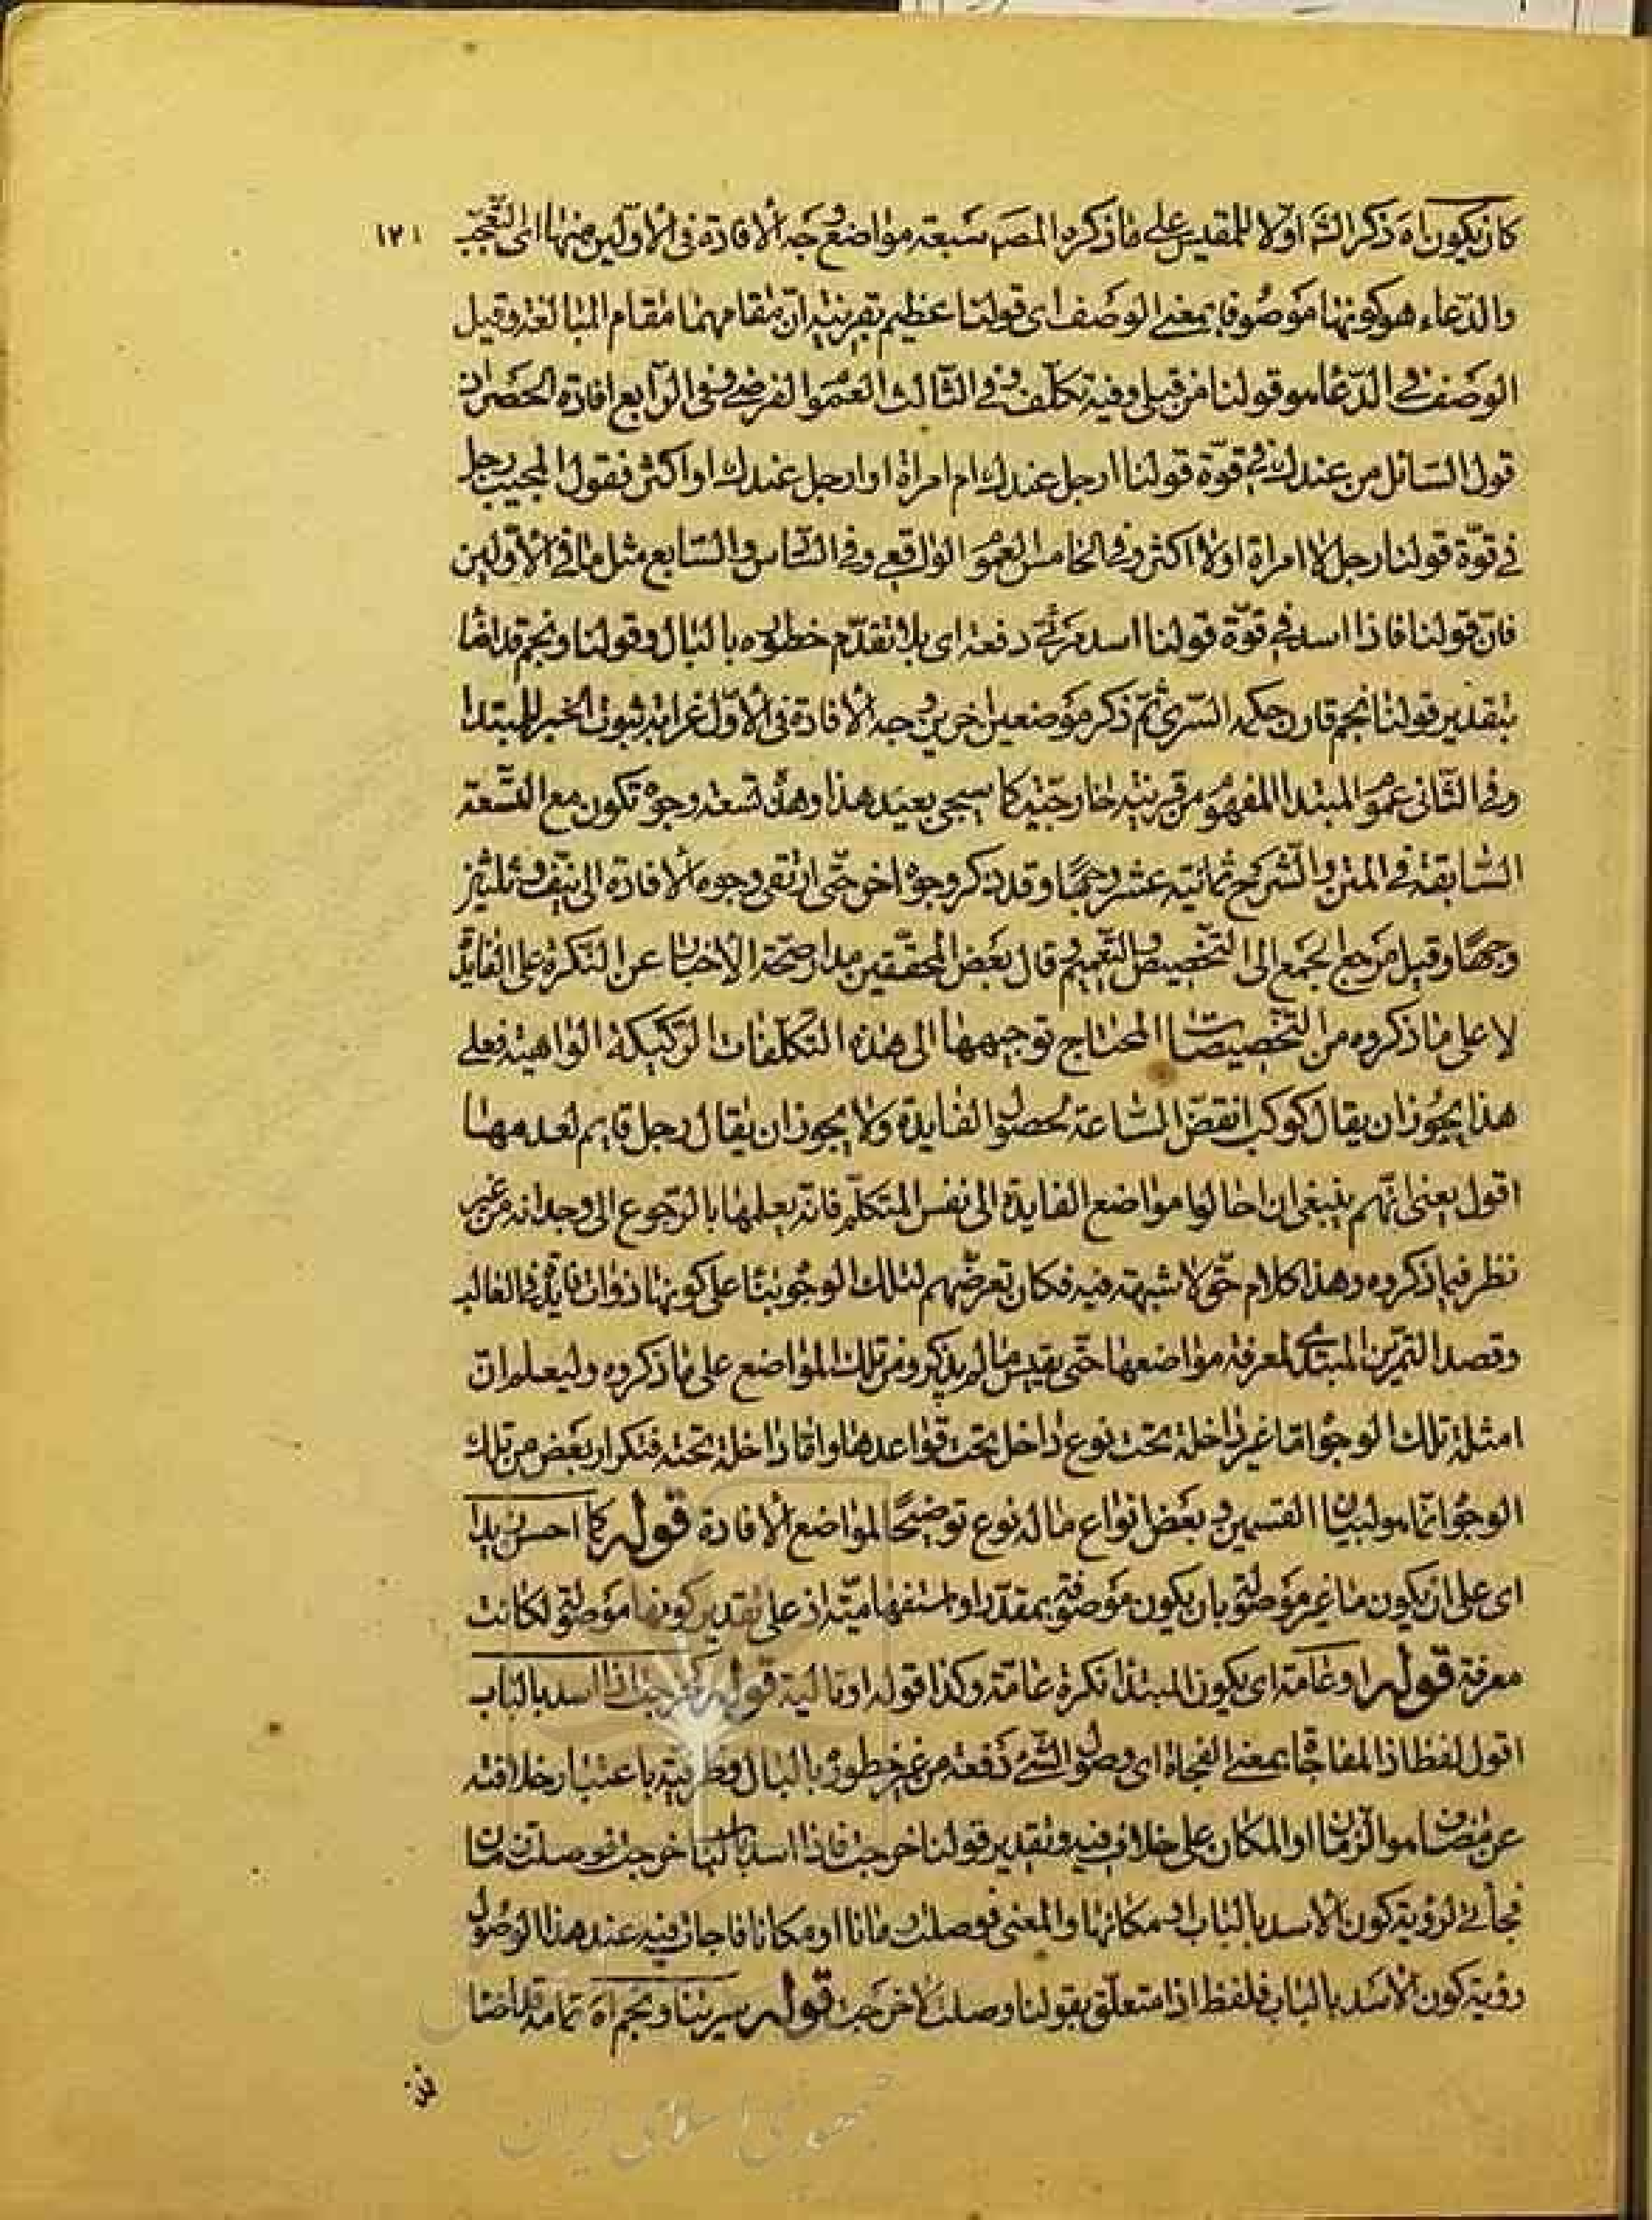 كان يكون اه ذكر الش اولا للمقيس على ما ذكره المص سبعة مواضع وجه الافادة فى الاولين منها اى التعجب
١٢١
والدعاء هو كونهما موصوفا بمعنى الوصف اى قولنا عظيم بقرينة ان مقامهما مقام المبالغة وقيل
الوصف فى الدعاء هو قولنا من قبلى وفيه تكلف وفى الثالث العموم الفرضى وفى الرابع افادة الحصر لان
قول السائل من عندك فى قوة قولنا ارجل عندك ام امراة او ارجل عندك او اكثر فقول المجيب رجل
فى قوة قولنا رجل لا امراة او لا اكثر وفى الخامس العموم الواقعى وفى السادس والسابع مثل ما فى الاولين
فان قولنا فاذا اسد فى قوة قولنا اسد مرئى دفعة اى بلا تقدم خطوره بالبال وقولنا ونجم قد اضا
بتقدير قولنا نجم قارن حكمه السرى ثم ذكر موضعين اخرين وجه الافادة فى الاول غرابة ثبوت الخبر للمبتدا
وفى الثانى عموم المبتدا المفهوم من قرينة خارجية كما سيجى بعيد هذا وهذه تسعة وجوه تكون مع التسعة
السابقة فى المتن والشرح ثمانية عشر وجها وقد ذكر وجوه اخر حتى ارتقى وجوه الافادة الى نيف وثلثين
وجها وقيل مرجع الجمع الى التخصيص والتعميم قال بعض المحققين مدار صحة الاخبار عن النكرة على الفايدة
لا على ما ذكروه من التخصيصات المحتاج توجيهها الى هذه التكلفات الركيكة الواهية فعلى
هذا يجوز ان يقال كوكب انقض الساعة لحصول الفايدة ولا يجوز ان يقال رجل قايم لعدمها
اقول يعنى انهم ينبغى ان احالوا مواضع الفايدة الى نفس المتكلم فانه يعلمها بالرجوع الى وجدانه من غير
نظر فيما ذكروه وهذا كلام حق لا شبهة فيه فكان تعرضهم لتلك الوجوه بناء على كونها ذوات فايدة فى الغالب
وقصد التمرين المبتدى لمعرفة مواضعها حتى يقيس ما لم يذكروه من تلك المواضع على ما ذكروه وليعلم ان
امثلة تلك الوجوه اما غير داخلة تحت نوع داخل تحت قواعدها واما داخلة تحته فتكرار بعض من تلك
الوجوه انما هو لبيان القسمين وبعض انواع ما له نوع توضيحا لمواضع الافادة قوله كما احسن زيدا
اى على ان يكون ما غير موصولة بان يكون موصوفة بمقدر او استفهامية اذ على تقدير كونها موصولة لكانت
معرفة قوله او عامة اى يكون المبتدا نكرة عامة وكذا قوله او تالية قوله خرجت فاذا اسد بالباب
اقول لفظ اذا المفاجاة بمعنى الفجاة اى وصول الشئ دفعة من غير خطوره بالبال وظرفيته باعتبار خلافته
عن مضاف هو الزمان او المكان على خلاف فيه وتقدير قولنا خرجت فاذا اسد بالباب خرجت فوصلت زمان
فجأتى لرؤية كون الاسد بالباب او مكانها والمعنى فوصلت زمانا او مكانا فاجاز فيه عند هذا الوصول
رؤية كون الاسد بالباب فلفظ اذا متعلق بقولنا وصلت لا خرجت قوله سرينا ونجم اه تمامه قد اضا